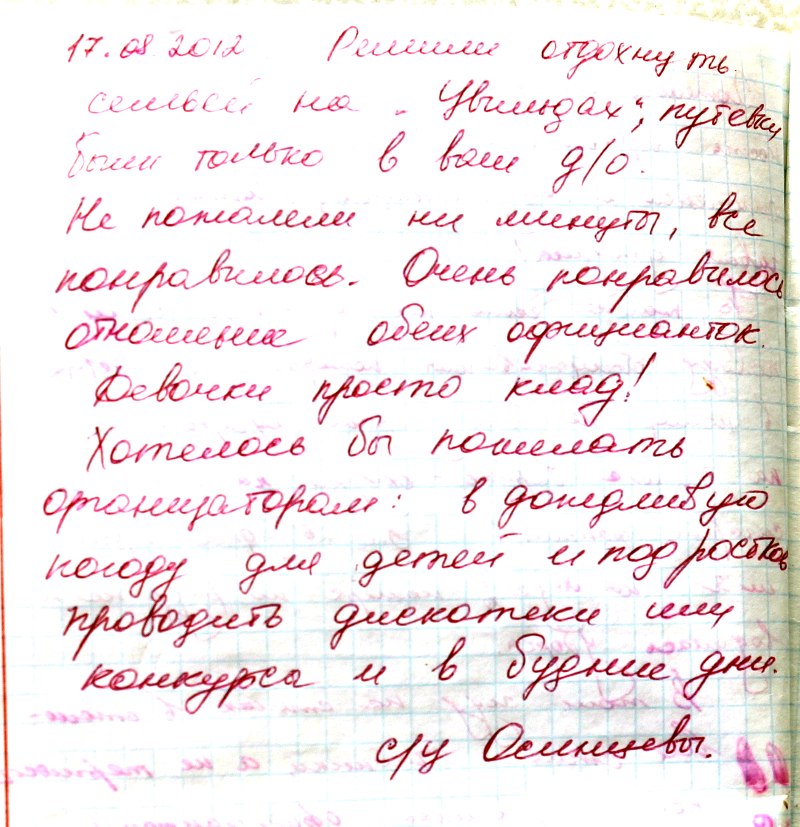 17.08.2012 Решили отдохнуть
семьёй на "Увильдах", путевки
были только в ваш д/о.
Не пожалели ни минуты, все
понравилось. Очень понравилось
отношение обеих официанток.
Девочки просто клад!
Хотелось бы пожелать
организаторам: в дождливую
погоду для детей и подростков
проводить дискотеки или
конкурсы и в будние дни.
с/у Осинцевы.